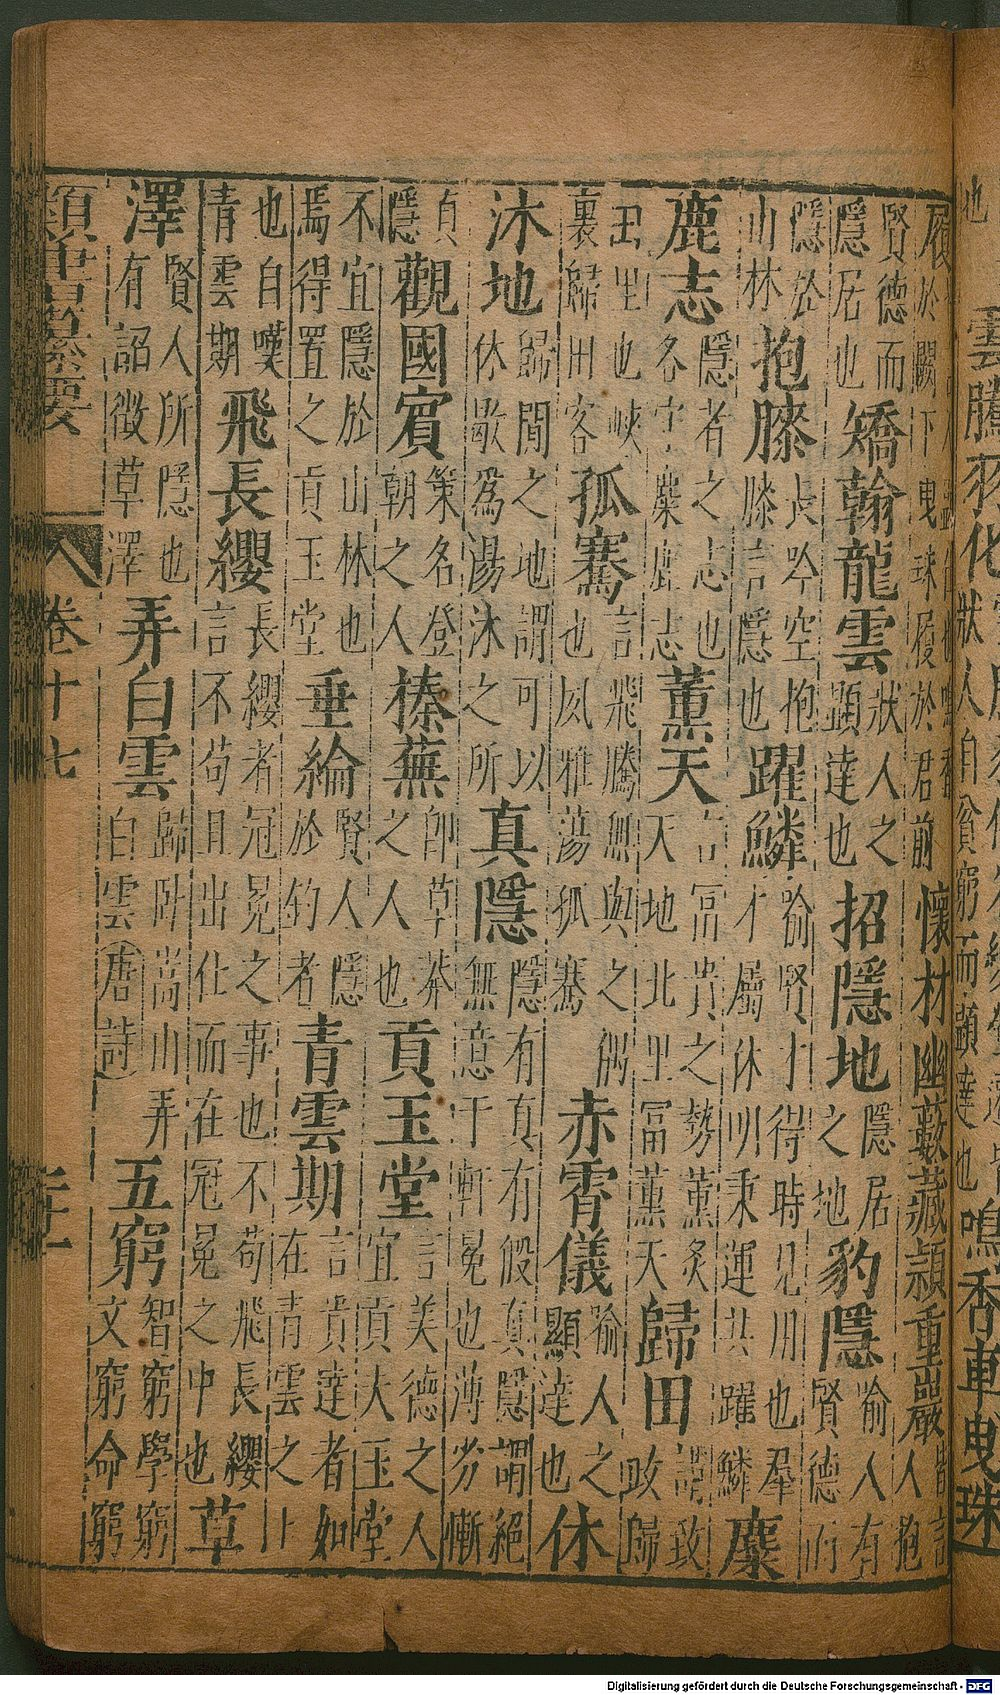 也 雲騰羽化 狀人自貧窮而顯達也 鳴香車曳珠
履於闕下曳珠履於君前 懷材幽藪藏穎重巖 皆言人抱
賢德而隱居也 矯翰龍雲 狀人之顯達也 招隱地 隱居之地 豹隱 喻人有賢德而
隱於山林 抱膝 長吟空抱膝言隱也 躍鱗 喻賢才得時見用也羣才屬休明秉運共躍鱗 麋
鹿志 隱者之志也各守麋鹿志 薰天 言富貴之勢薰炙天地北里富薰天 歸田 謂致政歸
田里也峽裏歸田客 孤騫 言飛騰無與之儔也風雅蕩孤騫 赤霄儀 喻人之顯達也 休
沐地 歸間之地謂可以休歇為湯沐之所 真隱 隱有真有假真隱謂絕無意于軒冕也薄劣慚
真隱 觀國賓 策名登朝之人 榛蕪 即草莽之人也 貢玉堂 言美德之人宜貢大玉堂
不宜隱於山林也焉得置之貢玉堂 垂綸 賢人隱於釣者 青雲期 言貴達者如在青雲之上
也自嘆青雲期 飛長纓 長纓者冠冕之事也不苟飛長纓言不苟且出仕而在冠冕之中也 草
澤 賢人所隱也有詔徵草澤 弄白雲 歸臥嵩山弄白雲(唐詩) 五窮 智窮學窮文窮命窮
類書纂要 卷十七
Digitalisierung gefördert durch die Deutsche Forschungsgemeinschaft - DFG